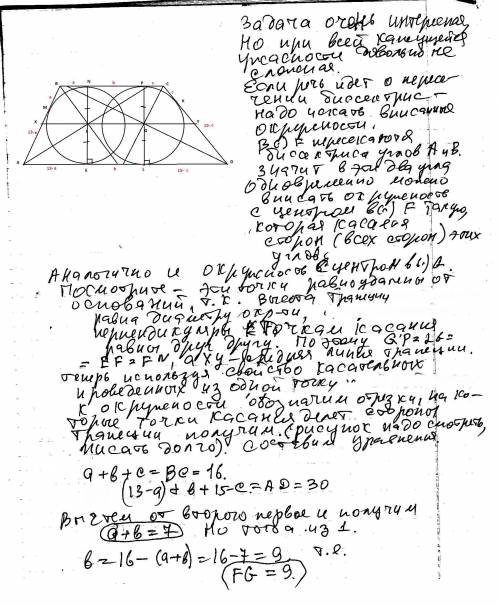 Задача очень интересная,
Но при всей кажущейся
ужасности довольно не
сложная.
Если речь идет о пересе-
чении биссектрис –
надо искать вписанные
окружности.
В (.) F пересекаются
биссектриса углов А и В.
Значит в эти два угла
одновременно можно
вписать окружность
с центром в (.) F такую,
которая касается
сторон (всех сторон) этих
углов.
Аналогично и окружность с центром в (.)
Посмотрите – эти точки равноудалены от
оснований, т.к. высота трапеции
равна диаметру окр-ти,
перпендикуляры к точкам касания
равны друг другу. Поэтому
= EF = FN, а XY – средняя линия трапеции.
Теперь используя свойство касательных
проведенных из одной точки
к окружности обозначим отрезки, на ко-
торые точки касания делят стороны
трапеции получим. (рисунок надо смотреть,
писать долго). Составим уравнения
a+b+c=BC=16.
(13-a)+b+15-c=AD=30
Вычтем от второго первое и получим
a+b=7 Но тогда из 1.
b=16-(a+b)=16-7=9. т.е.
FG=9.